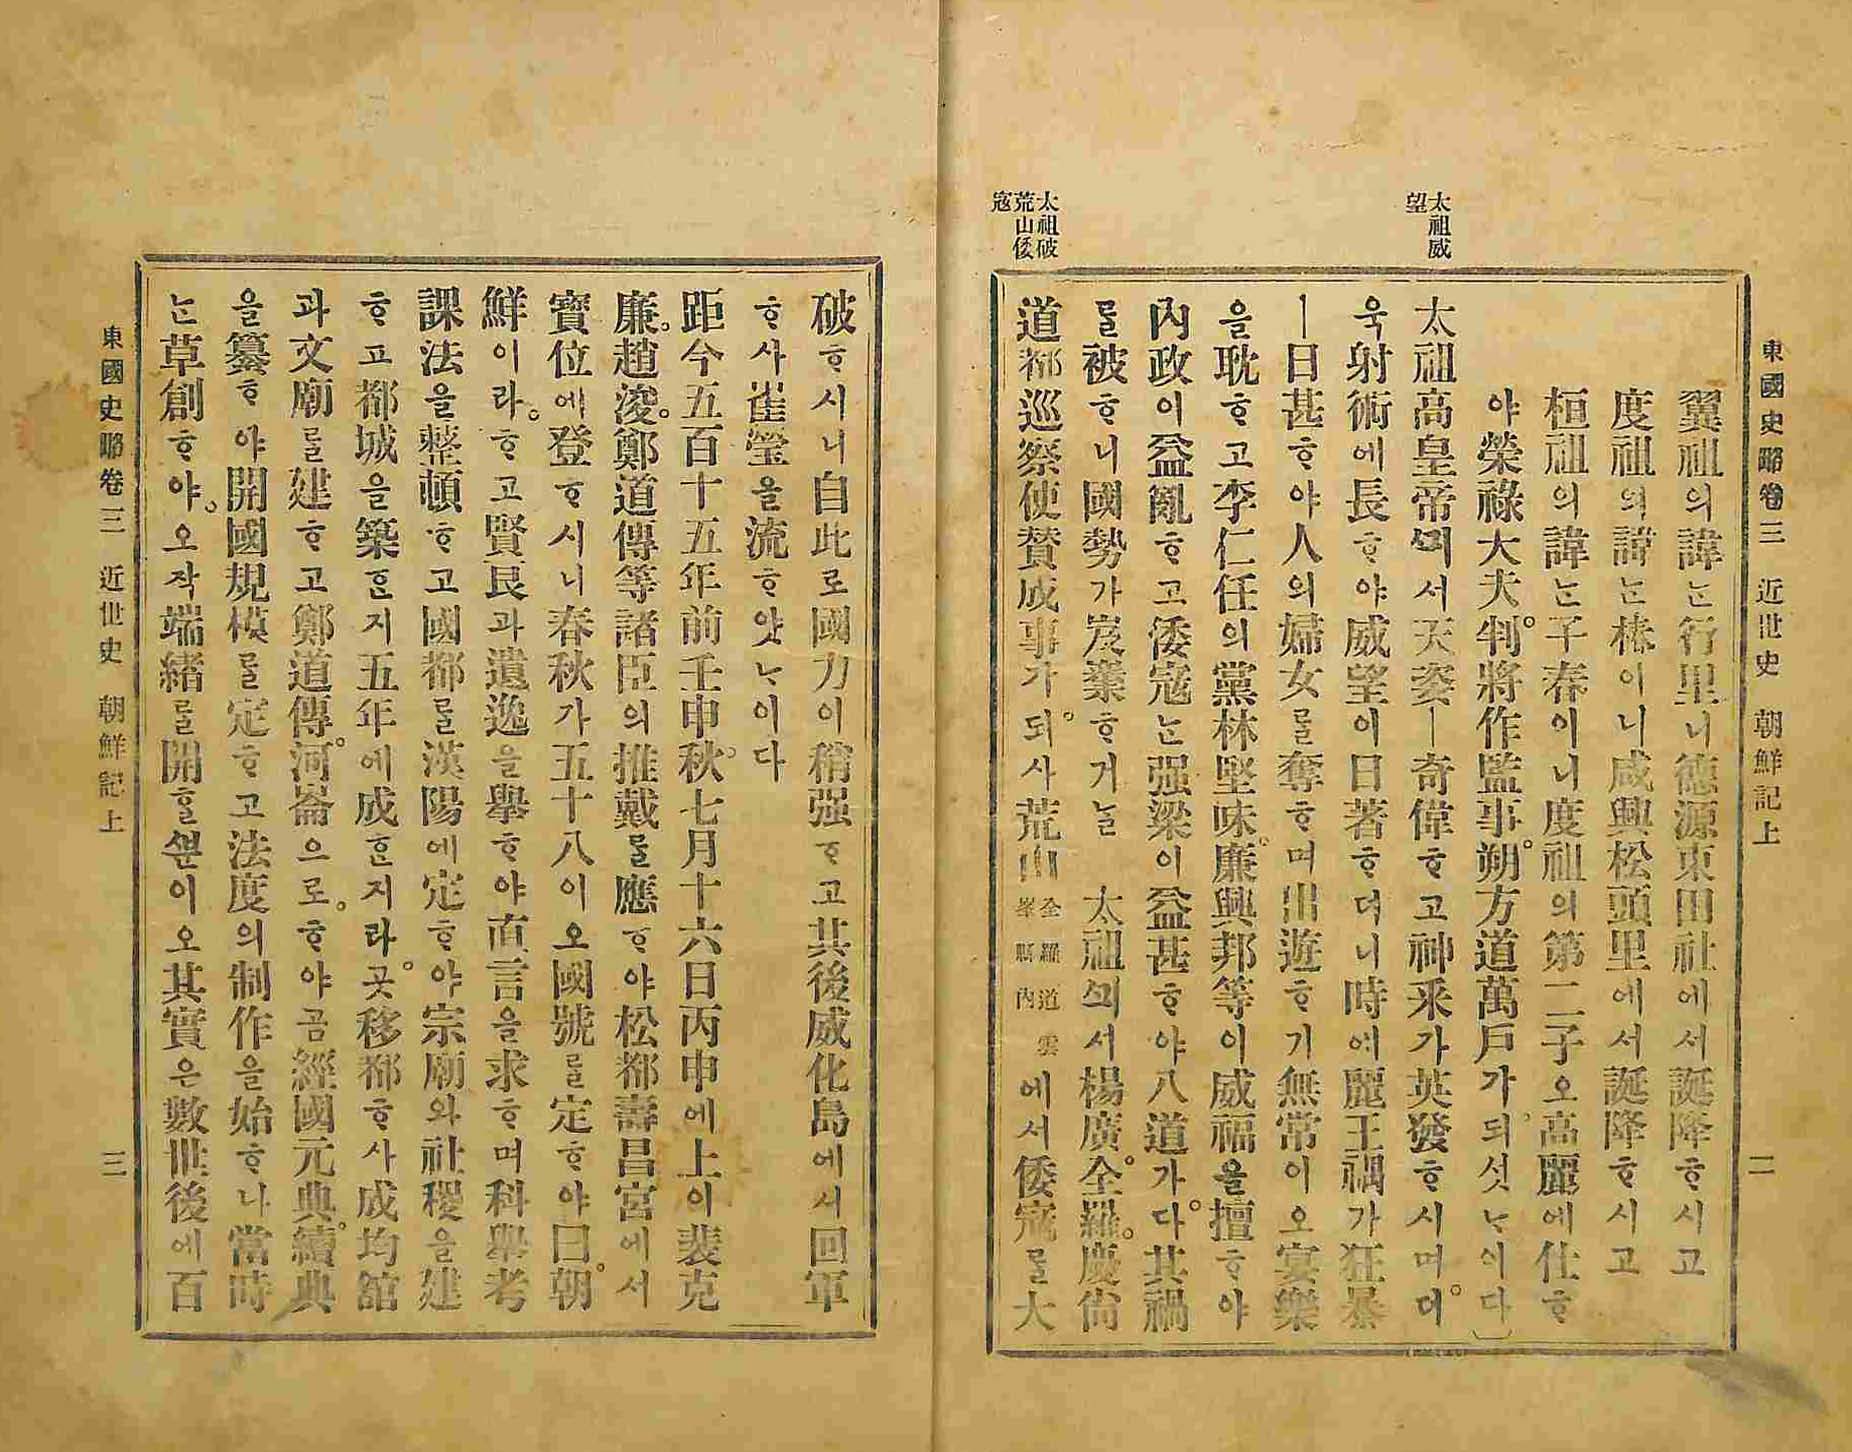 東國史略卷三 近世史 朝鮮記上 二
太祖威
望
太祖破
荒山倭
寇
翼祖의諱ᄂᆞᆫ行里니德源東田社에셔誕降ᄒᆞ시고
度祖의諱ᄂᆞᆫ椿이니咸興松頭里에셔誕降ᄒᆞ시고
桓祖의諱ᄂᆞᆫ子春이니度祖의第二子오高麗에仕ᄒᆞ
야榮祿大夫。判將作監事。朔方道萬戶가되셧ᄂᆞ이다〕
太祖高皇帝ᄭᅴ셔天姿ㅣ奇偉ᄒᆞ고神采가英發ᄒᆞ시며。더
욱射術에長ᄒᆞ야威望이日著ᄒᆞ더니時에麗王禑가狂暴
ㅣ日甚ᄒᆞ야人의婦女ᄅᆞᆯ奪ᄒᆞ며出遊ᄒᆞ기無常이오宴樂
을耽ᄒᆞ고李仁任의黨林堅味。廉興邦等이威福을擅ᄒᆞ야
內政이益亂ᄒᆞ고倭寇ᄂᆞᆫ强梁이益甚ᄒᆞ야八道가다。其禍
ᄅᆞᆯ被ᄒᆞ니國勢가岌嶪ᄒᆞ거ᄂᆞᆯ 太祖ᄭᅴ셔楊廣。全羅。慶尙
道都巡察使贊成事가되。사荒山全羅道雲峯縣內에셔倭寇ᄅᆞᆯ大
破ᄒᆞ시니自此로國力이稍强ᄒᆞ고其後威化島에셔回軍
ᄒᆞ사崔瑩을流ᄒᆞ얏ᄂᆞ이다
距今五百十五年前壬申秋。七月十六日丙申에上이裴克
廉。趙浚。鄭道傳等諸臣의推戴ᄅᆞᆯ應ᄒᆞ야松都壽昌宮에셔
寶位에登ᄒᆞ시니春秋가五十八이오國號ᄅᆞᆯ定ᄒᆞ야曰朝。
鮮이라。ᄒᆞ고賢良과遺逸을擧ᄒᆞ야直言을求ᄒᆞ며科擧考
課法을整頓ᄒᆞ고國都ᄅᆞᆯ漢陽에定ᄒᆞ야宗廟와社稷을建
ᄒᆞ고都城을築ᄒᆞᆫ지五年에成ᄒᆞᆫ지라。곳移都ᄒᆞ사成均館
과文廟ᄅᆞᆯ建ᄒᆞ고鄭道傳。河崙으로。ᄒᆞ야곰經國元典。續典
을纂ᄒᆞ야開國規模ᄅᆞᆯ定ᄒᆞ고法度의制作을始ᄒᆞ나當時
ᄂᆞᆫ草創ᄒᆞ야。오작端緖ᄅᆞᆯ開ᄒᆞᆯᄲᅮᆫ이오其實은數世後에百
東國史略卷三 近世史 朝鮮記上 三